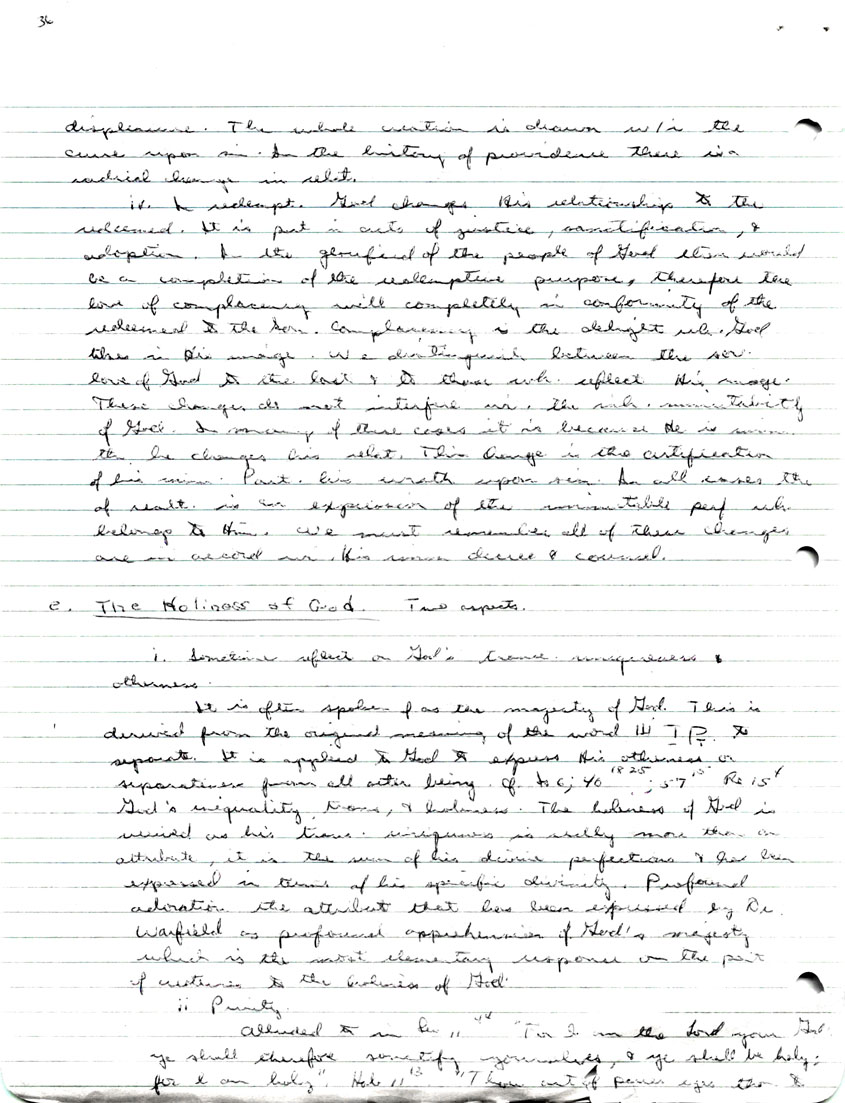 36
displeasure. The whole creation is drawn w/i the
curse upon sin. In the history of providence there is a
radical change in relat.
iv. In redempt. God changes His relationship to the
redeemed. It is put in acts of justice, sanctification, &
adoption. In the glorified of the people of God there would
be a completion of the redemptive purpose, therefore the
love of complacency will completely in conformity of the
redeemed to the Son. Complacency is the delight wh. God
takes in His image. We distinguish between the
love of God to the lost & to those wh. reflect His image.
These changes do not interfere w. the immutability
of God. In many of these cases it is because He is imm.
he changes his relat. This change is the certification
of his imm. Part. his wrath upon sin. In all cases the
of realt. is an expression of the immutable perf wh.
belongs to Him. We must remember all of these changes
are in accord w. His imm decree & counsel.
e. The Holiness of God. Two aspects.
i. Sometime reflect on God's transc. uniqueness &
otherness.
It is often spoken of as the majesty of God. This is
derived from the original meaning of the word to
separate. It is applied to God to express His otherness or
separateness from all other being. cf Is 6; 40 18 25; 57 15 Re 15 4
God's inequality, trans, & holiness. The holiness of God is
viewed as his trans. uniqueness is really more than an
attribute, it is the sum of his divine perfections & has been
expressed in terms of his specific divinity. Profound
adoration the attribut that has been expressed by Dr.
Warfield as profound apprehension of God's majesty
which is the most elementary response on the part
of creatures to the holiness of God
ii Purity.
Alluded to in Lev 11 44 "For I am the Lord your God:
ye shall therefore sanctify yourselves, & ye shall be holy;
for I am holy". Hab 1 13 "Thou art of purer eyes than to